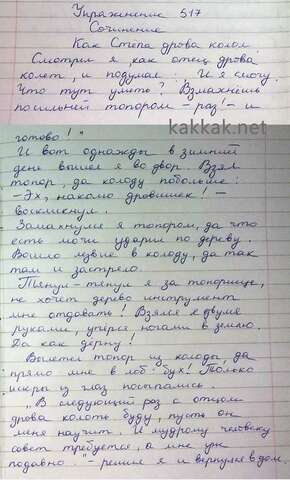 Упражнение 517
Сочинение
Как Степа дрова колол.
Смотрел я, как отец дрова
колет, и подумал: „И я смогу.
Что тут уметь? Взмахнешь
посильней топором – раз! – и
kakkak.net
готово!"
И вот однажды в зимний
день вышел я во двор. Взял
топор, да колоду побольше:
– Эх, наколю дровишек! –
воскликнул.
Замахнулся я топором, да что
есть мочи ударил по дереву.
Вошло лезвие в колоду, да так
там и застряло.
Тянул-тянул я за топорище,
не хочет дерево инструмент
мне отдавать! Взялся я двумя
руками, уперся ногами в землю.
Да как дерну!
Вылетел топор из колоды, да
прямо мне в лоб бух! Только
искры из глаз посыпались.
„В следующий раз с отцом
дрова колоть буду, пусть он
меня научит. И мудрому человеку
совет требуется, а мне уж
подавно.." – решил я и вернулся в дом.